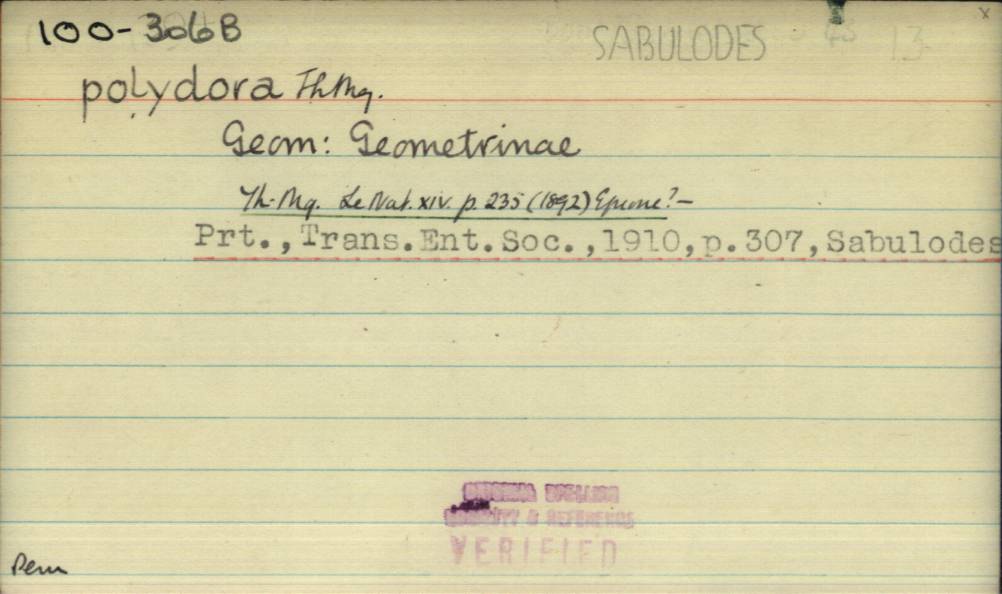 100-306B
SABULODES
x
polydora Th-Mg.
Geom: Geometrinae
Th-Mg. Le Nat. xiv. p. 235 (1892) Epione?-
Prt., Trans.Ent.Soc.,1910,p.307,Sabulodes
ORIGINAL SPELLING
LOCALITY & REFERENCE
VERIFIED
Peru